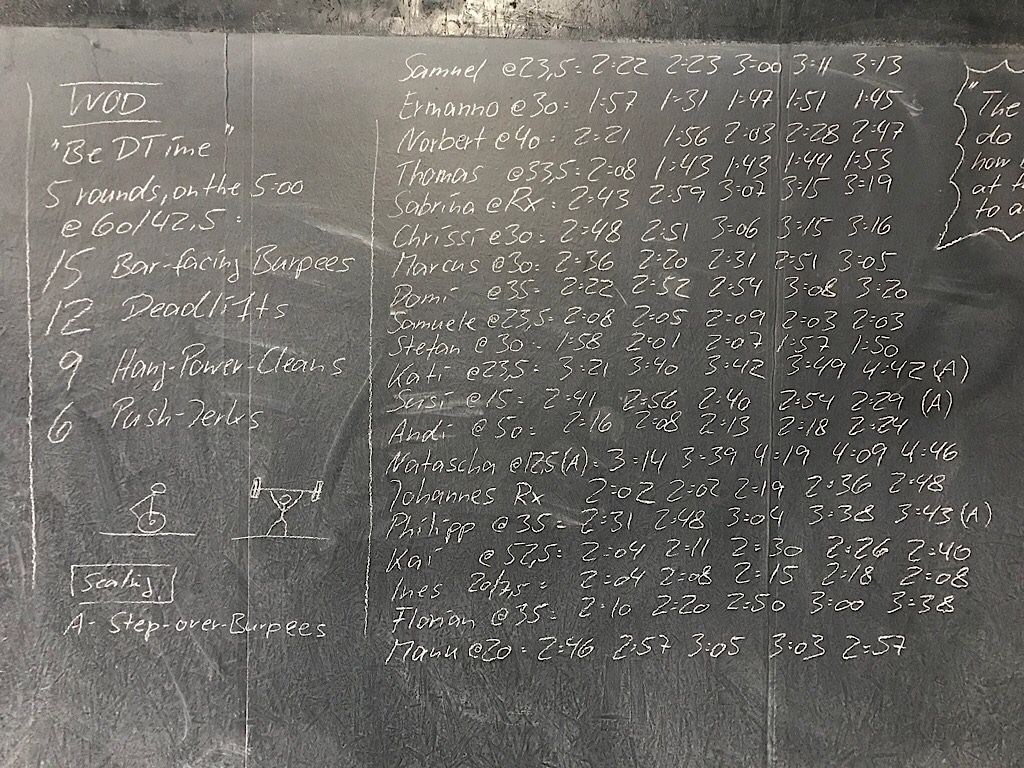 WOD
"Be DTime"
5 rounds, on the 5:00
@ 60/42,5:
15 Bar-facing Burpees
12 Deadlifts
9 Hang-Power-Cleans
6 Push-Jerks
Scaling
A- Step-over-Burpees
Samuel @23,5: 2:22 2:23 3:00 3:11 3:13
Ermanno @30: 1:57 1:31 1:47 1:51 1:45
Norbert @40: 2:21 1:56 2:03 2:28 2:47
Thomas @33,5: 2:08 1:43 1:43 1:44 1:53
Sabrina @Rx: 2:43 2:59 3:07 3:15 3:19
Chrissi @30: 2:48 2:51 3:06 3:15 3:16
Marcus @30: 2:36 2:20 2:31 2:51 3:05
Domi @35: 2:22 2:52 2:54 3:08 3:20
Samuele @23,5: 2:08 2:05 2:09 2:03 2:03
Stefan @30: 1:58 2:01 2:07 1:57 1:50
Kati @23,5: 3:21 3:40 3:42 3:49 4:42 (A)
Susi @15: 2:41 2:56 2:40 2:54 2:29 (A)
Andi @50: 2:16 2:08 2:13 2:18 2:24
Natascha @12,5(A): 3:14 3:39 4:19 4:09 4:46
Johannes Rx 2:02 2:02 2:19 2:36 2:48
Philipp @35: 2:31 2:48 3:04 3:38 3:43 (A)
Kai @52,5: 2:04 2:11 2:30 2:26 2:40
Ines : 2:04 2:08 2:15 2:18 2:08
Florian @35: 2:10 2:20 2:50 3:00 3:38
Manu @20: 2:46 2:57 3:05 3:03 2:57
"The
do
how
at
to